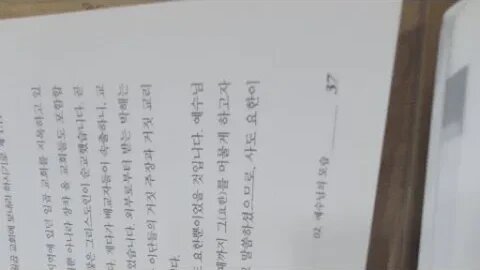 교회에 보내라 하시기로
지역에 있던 일곱 교회를 지목하고 있
뿐 아니라 장차 올 교회들도 포함합
많은 그리스도인이 순교했습니다. 곧
다. 게다가 배교자들이 속출하니, 교
있습니다. 외부로부터 받는 박해는
이단들의 거짓 주장과 거짓 교리
다.
요한뿐이었을 것입니다. 예수님
때까지 그(요한)를 머물게 하고자
말씀하셨으므로, 사도 요한이
02 예수님의 모습 37